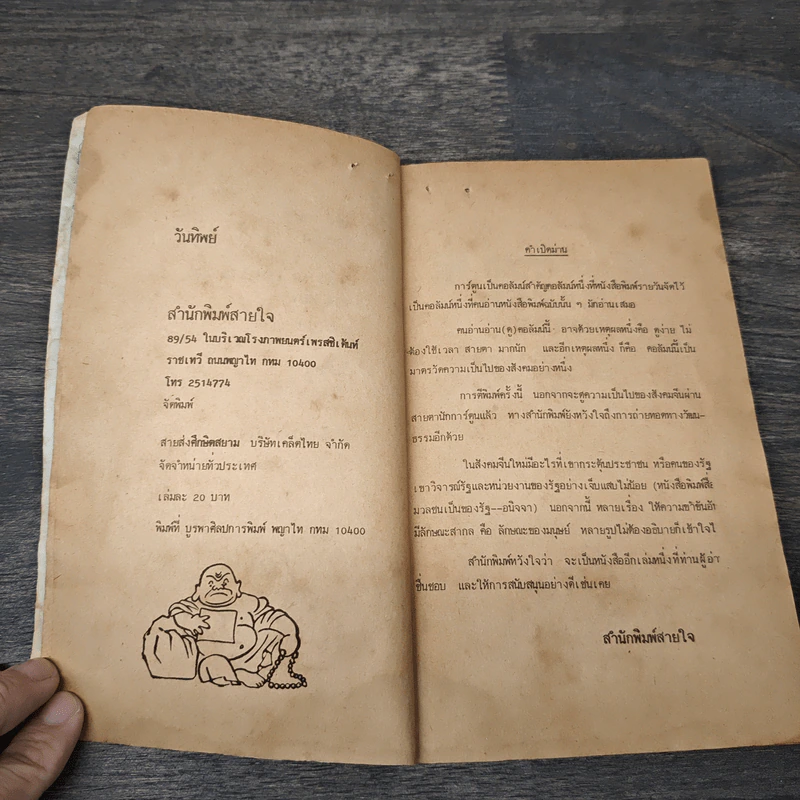 วันทิพย์
สำนักพิมพ์สายใจ
89/54 ในบริเวณโรงภาพยนตร์เพรสซิเด้นท์
ราชเทวี ถนนพญาไท กทม 10400
โทร 2514774
จัดพิมพ์
สายส่งศึกษิตสยาม บริษัทเคล็ดไทย จำกัด
จัดจำหน่ายทั่วประเทศ
เล่มละ 20 บาท
พิมพ์ที่ บูรพาศิลปการพิมพ์ พญาไท กทม 10400
คำเปิดม่าน
การ์ตูนเป็นคอลัมน์สำคัญคอลัมน์หนึ่งที่หนังสือพิมพ์รายวันจัดไว้
เป็นคอลัมน์หนึ่งที่คนอ่านหนังสือพิมพ์ฉบับนั้น ๆ มักอ่านเสมอ
คนอ่านอ่าน(ดู)คอลัมน์นี้ อาจด้วยเหตุผลหนึ่งคือ ดูง่าย ไม่
ต้องใช้เวลา สายตา มากนัก และอีกเหตุผลหนึ่ง ก็คือ คอลัมน์นี้เป็น
มาตรวัดความเป็นไปของสังคมอย่างหนึ่ง
การตีพิมพ์ครั้งนี้ นอกจากจะดูความเป็นไปของสังคมจีนผ่าน
สายตานักการ์ตูนแล้ว ทางสำนักพิมพ์ยังหวังใจถึงการถ่ายทอดทางวัฒน-
ธรรมอีกด้วย
ในสังคมจีนใหม่มีอะไรที่เขากระตุ้นประชาชน หรือคนของรัฐ
เขาวิจารณ์รัฐและหน่วยงานของรัฐอย่างเจ็บแสบไม่น้อย (หนังสือพิมพ์สื่อ
มวลชนเป็นของรัฐ--อนิจจา) นอกจากนี้ หลายเรื่อง ให้ความขำขัน
มีลักษณะสากล คือ ลักษณะของมนุษย์ หลายรูปไม่ต้องอธิบายก็เข้าใจ
สำนักพิมพ์หวังใจว่า จะเป็นหนังสืออีกเล่มหนึ่งที่ท่าน
ชื่นชอบ และให้การสนับสนุนอย่างดีเช่นเคย
สำนักพิมพ์สายใจ